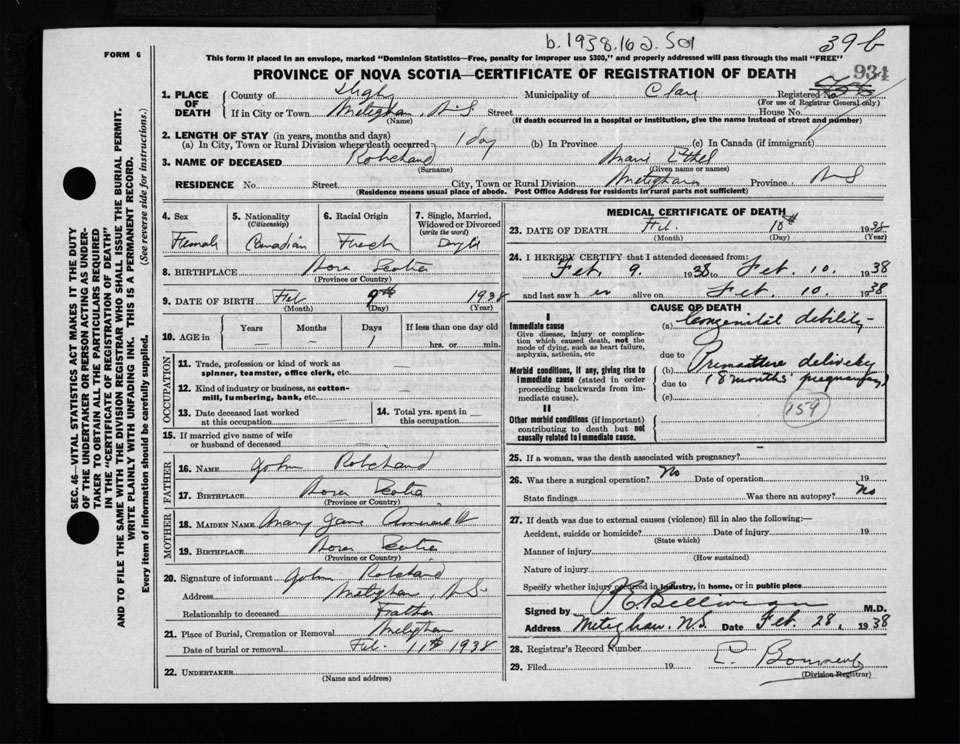 b. 1938.162.501
39b
FORM 6
This form if placed in an envelope, marked "Dominion Statistics—Free, penalty for improper use $300," and properly addressed will pass through the mail "FREE"
934
PROVINCE OF NOVA SCOTIA—CERTIFICATE OF REGISTRATION OF DEATH
1. PLACE OF DEATH
County of Digby Municipality of Clare Registered No.
(For use of Registrar General only)
If in City or Town Meteghan, N-S Street House No.
(Name) (If death occurred in a hospital or institution, give the name instead of street and number)
2. LENGTH OF STAY (in years, months and days)
(a) In City, Town or Rural Division where death occurred 1 day (b) In Province (c) In Canada (if immigrant)
3. NAME OF DECEASED Robichaud Marie Ethel
(Surname) (Given name or names)
RESIDENCE No. Street City, Town or Rural Division Meteghan Province N S
(Residence means usual place of abode. Post Office Address for residents in rural parts not sufficient)
4. Sex
Female
5. Nationality (Citizenship)
Canadian
6. Racial Origin
French
7. Single, Married, Widowed or Divorced (write the word)
Single
8. BIRTHPLACE Nova Scotia
(Province or Country)
9. DATE OF BIRTH Feb 9th 1938
(Month) (Day) (Year)
10. AGE in Years Months Days If less than one day old
— — 1 hrs. or min.
OCCUPATION
11. Trade, profession or kind of work as spinner, teamster, office clerk, etc. —
12. Kind of industry or business, as cotton-mill, lumbering, bank, etc. —
13. Date deceased last worked at this occupation
14. Total yrs. spent in this occupation
15. If married give name of wife or husband of deceased —
FATHER
16. NAME John Robichaud
17. BIRTHPLACE Nova Scotia
(Province or Country)
MOTHER
18. MAIDEN NAME Mary Jane
19. BIRTHPLACE Nova Scotia
(Province or Country)
20. Signature of informant John Robichaud
Address Meteghan, N-S.
Relationship to deceased Father
21. Place of Burial, Cremation or Removal Meteghan
Date of burial or removal Feb. 11th 1938
22. UNDERTAKER
(Name and address)
MEDICAL CERTIFICATE OF DEATH
23. DATE OF DEATH Feb. 10th 1938
(Month) (Day) (Year)
24. I HEREBY CERTIFY that I attended deceased from:
Feb. 9. 1938 to Feb. 10. 1938
and last saw h er alive on Feb. 10. 1938
CAUSE OF DEATH
I
Immediate cause
Give disease, injury or complication which caused death, not the mode of dying, such as heart failure, asphyxia, asthenia, etc
(a) Congenital debility
due to
Morbid conditions, if any, giving rise to immediate cause (stated in order proceeding backwards from immediate cause).
(b) Premature delivery
due to (8 months' pregnancy)
(c)
159
II
Other morbid conditions (if important) contributing to death but not causally related to immediate cause.
25. If a woman, was the death associated with pregnancy?
26. Was there a surgical operation? No Date of operation 19
State findings Was there an autopsy? No
27. If death was due to external causes (violence) fill in also the following:—
Accident, suicide or homicide? Date of injury 19
(State which)
Manner of injury
(How sustained)
Nature of injury
Specify whether injury occurred in industry, in home, or in public place
Signed by Belliveau M.D.
Address Meteghan. N.S. Date Feb. 28, 1938
28. Registrar's Record Number
29. Filed 19
(Division Registrar)
SEC. 46—VITAL STATISTICS ACT MAKES IT THE DUTY
OF THE UNDERTAKER OR PERSON ACTING AS UNDER-
TAKER TO OBTAIN ALL THE PARTICULARS REQUIRED
IN THE "CERTIFICATE OF REGISTRATION OF DEATH"
AND TO FILE THE SAME WITH THE DIVISION REGISTRAR WHO SHALL ISSUE THE BURIAL PERMIT.
WRITE PLAINLY WITH UNFADING INK. THIS IS A PERMANENT RECORD.
Every item of information should be carefully supplied. (See reverse side for instructions.)